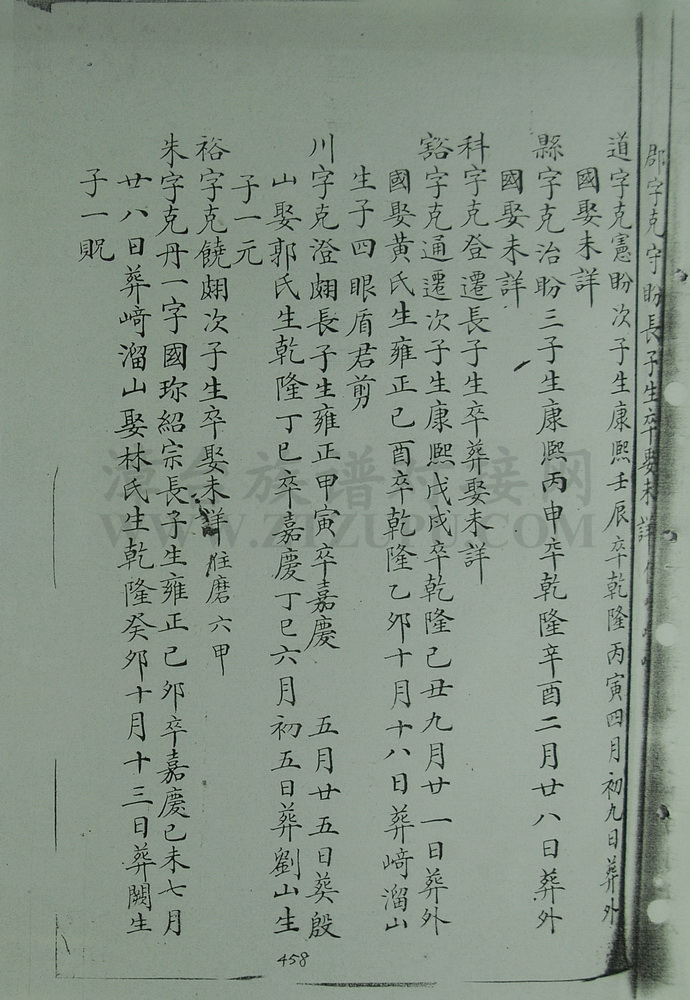 郡字克守盼長子生卒娶未詳
道字克憲盼次子生康熙壬辰卒乾隆丙寅四月初九日葬外
國娶未詳
縣字克治盼三子生康熙丙申卒乾隆辛酉二月廿八日葬外
國娶未詳
科字克登遷長子生卒葬娶未詳
豁字克通遷次子生康熙戊戌卒乾隆己丑九月廿一日葬外
國娶黃氏生雍正己酉卒乾隆乙夘十月十八日葬﨑溜山
生子四眼盾君剪
川字克澄翽長子生雍正甲寅卒嘉慶 五月廿五日葬殷
山娶郭氏生乾隆丁巳卒嘉慶丁巳六月初五日葬劉山生
子一元
裕字克饒翽次子生卒娶未詳 住磨六甲
朱字克丹一字國珎紹宗長子生雍正己夘卒嘉慶己未七月
廿八日葬﨑溜山娶林氏生乾隆癸夘十月十三日葬闕生
子一貺
458
WWW.ZTZUPU.COM